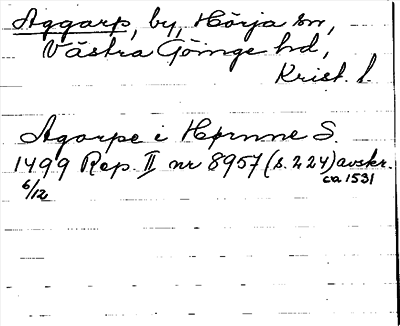 Aggarp, by, Hörja sn,
Västra Göinge hd,
Krist. l.
Agarpe i Hprnne S.
1499 Rep. II nr 8957 (s. 224) avskr.
6/12 ca 1531